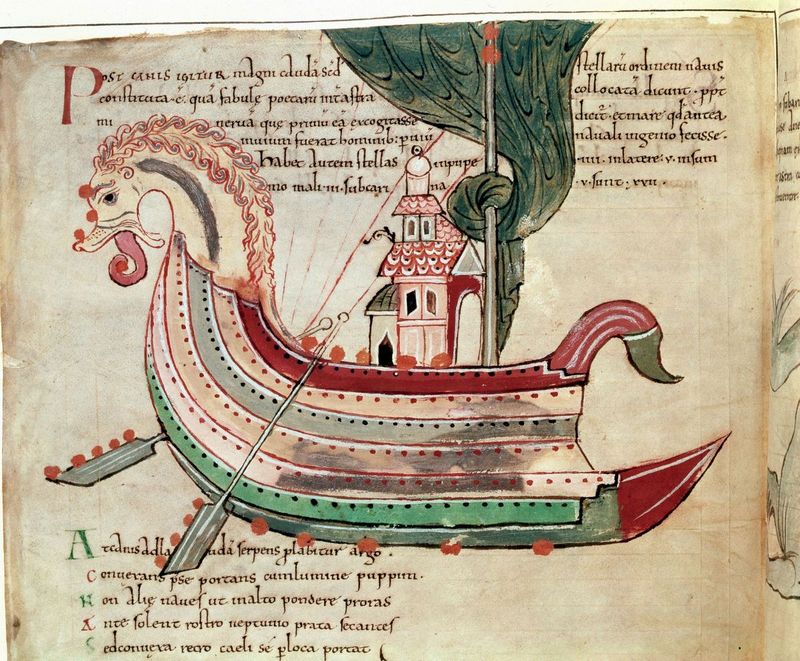 Post canis igitur magni caudā sed stellarū ordinem navis
constituta ē. quā fabule poetarū int astra collocatā dicunt. ppt
mi nerva que primū eā excogitasse dicit. et mare qd antea
invium fuerat hominib: pviū navali ingenio fecisse.
Habet autem stellas inpupe .iiii. inlatere .v. insum
mo mali .iii. subcari na .v. sunt: xxii.
At canis ad caudā serpens plabitur argo.
Conversam pse portans cumlumine puppim.
Non alie naves ut inalto pondere proras
Ante solent rostro neptunio prata secantes
Sedconversa retro caeli se ploca portat